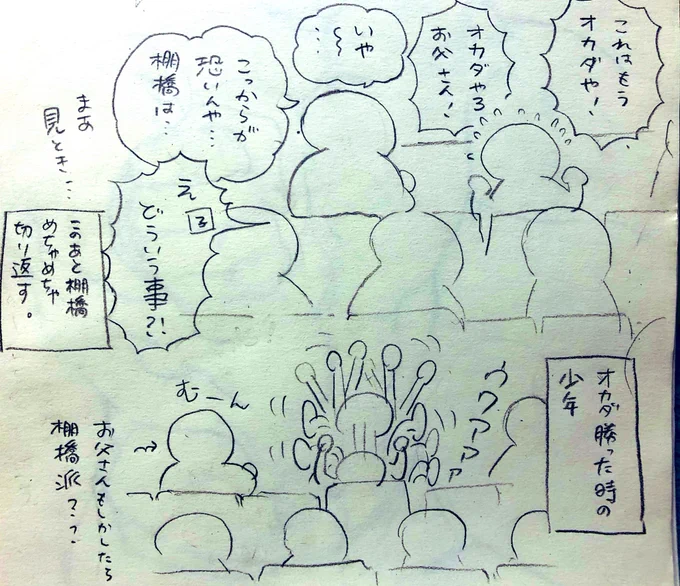 これはもう
オカダや！
オカダやろ
お父さん！
いや
…〜
こっからが
恐いんや…
棚橋は…
まあ
見とき…
え
子
どういう事?!
このあと棚橋
めちゃめちゃ
切り返す。
オカダ勝った時の
少年
ウワアアアァ
むーん
お父さんもしかしたら
棚橋派??